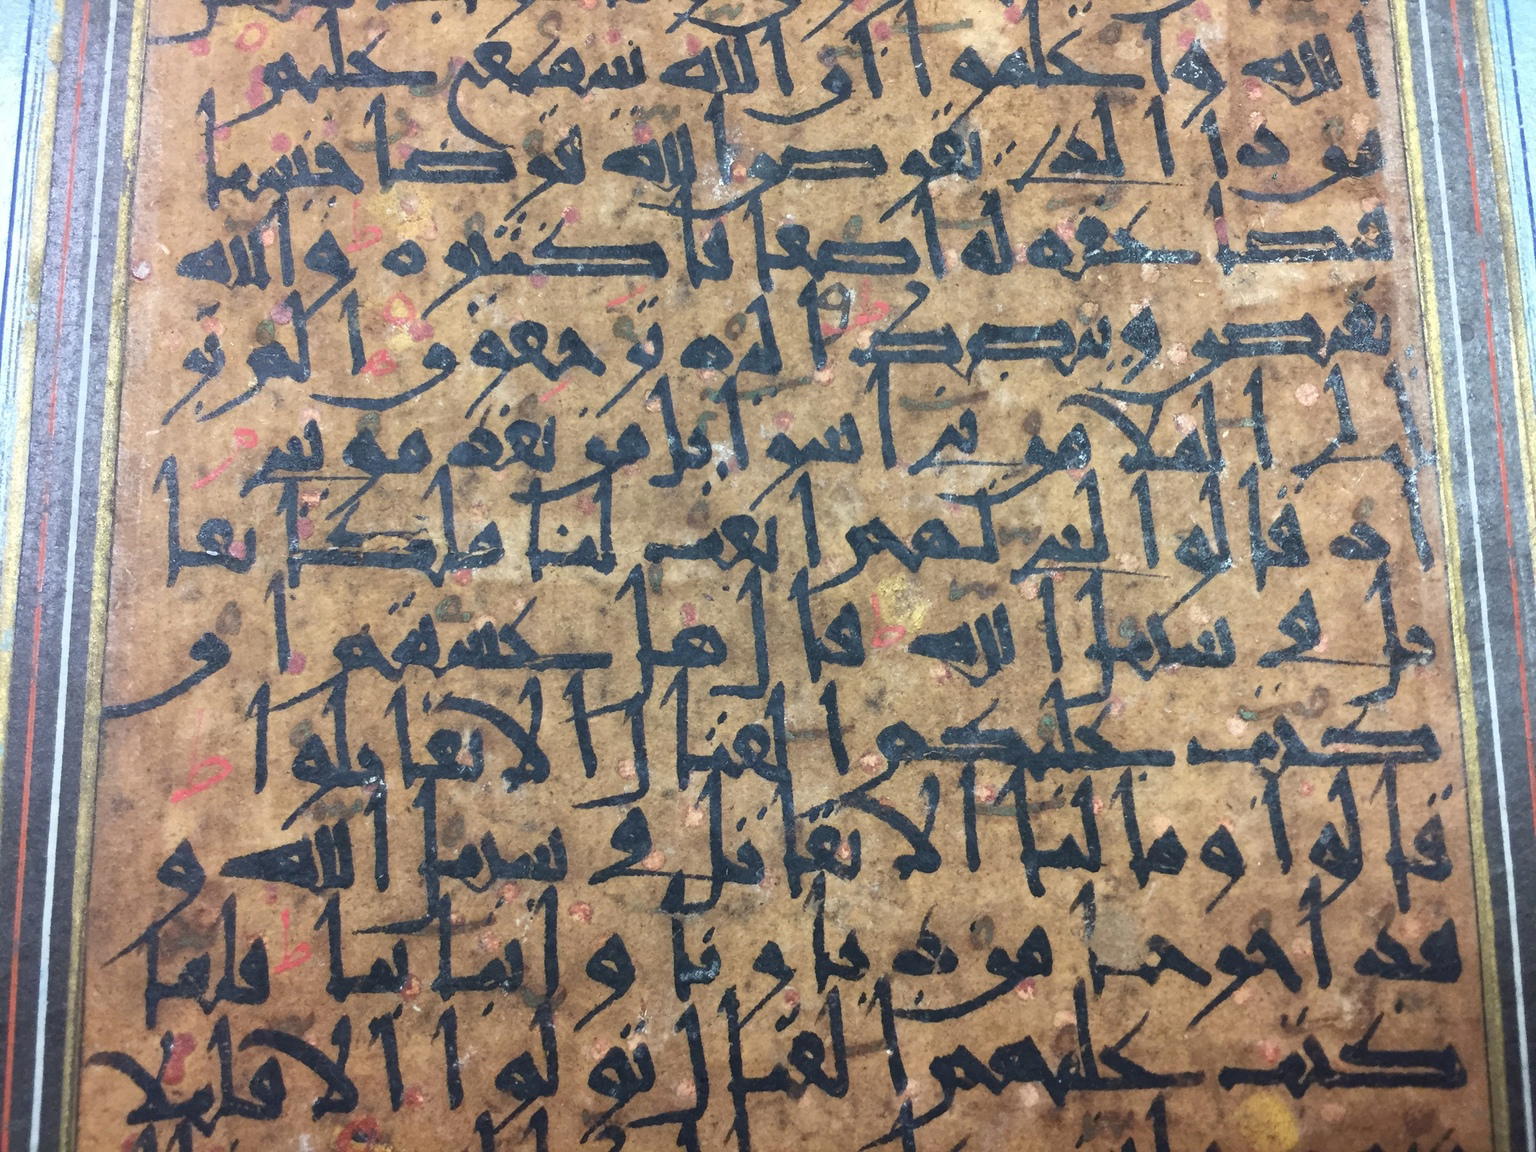 الله واعلموا ان الله سميع عليم
من ذا الذي يقرض الله قرضا حسنا
فيضاعفه له اضعافا كثيرة والله
يقبض ويبصط واليه ترجعون الم تر
الى الملا من بني اسرايل من بعد موسى
اذ قالوا لنبي لهم ابعث لنا ملكا نقا
تل في سبيل الله قال هل عسيتم ان
كتب عليكم القتال الا تقاتلوا
قالوا وما لنا الا نقاتل في سبيل الله و
قد اخرجنا من ديارنا وابنائنا فلما
كتب عليهم القتال تولوا الا قليلا